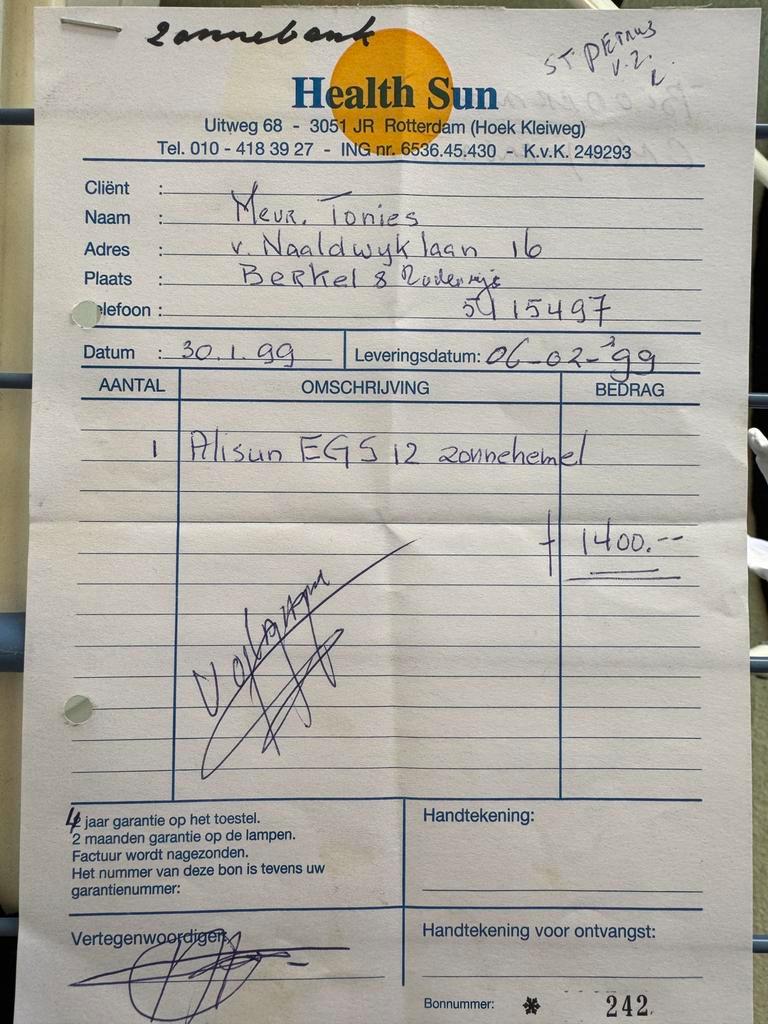 Zonnebank
ST PETRUS
V.Z.
Health Sun
Uitweg 68 - 3051 JR Rotterdam (Hoek Kleiweg)
Tel. 010 - 418 39 27 - ING nr. 6536.45.430 - K.v.K. 249293
Cliënt :
Naam : Mevr. Tonies
Adres : v. Naaldwyk laan 16
Plaats : Berkel & Rodenrijs
elefoon : 5115497
Datum : 30.1.99 Leveringsdatum: 06-02-'99
AANTAL OMSCHRIJVING BEDRAG
1 Alisun EGS 12 zonnehemel
f 1400.--
Voldaan
4 jaar garantie op het toestel.
2 maanden garantie op de lampen.
Factuur wordt nagezonden.
Het nummer van deze bon is tevens uw
garantienummer:
Handtekening:
Vertegenwoordiger:
Handtekening voor ontvangst:
Bonnummer: ✻ 242